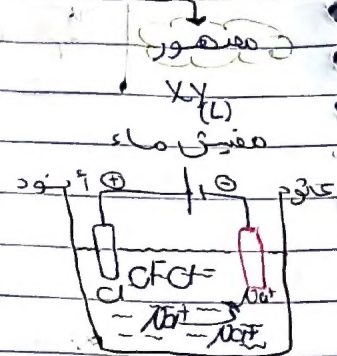 مصهور
XY(L)
مفيش ماء
أنود ⊕ ⊖ كاثود
Cl⁻ Cl⁻
Cl Na⁺
Na⁺ Na⁺